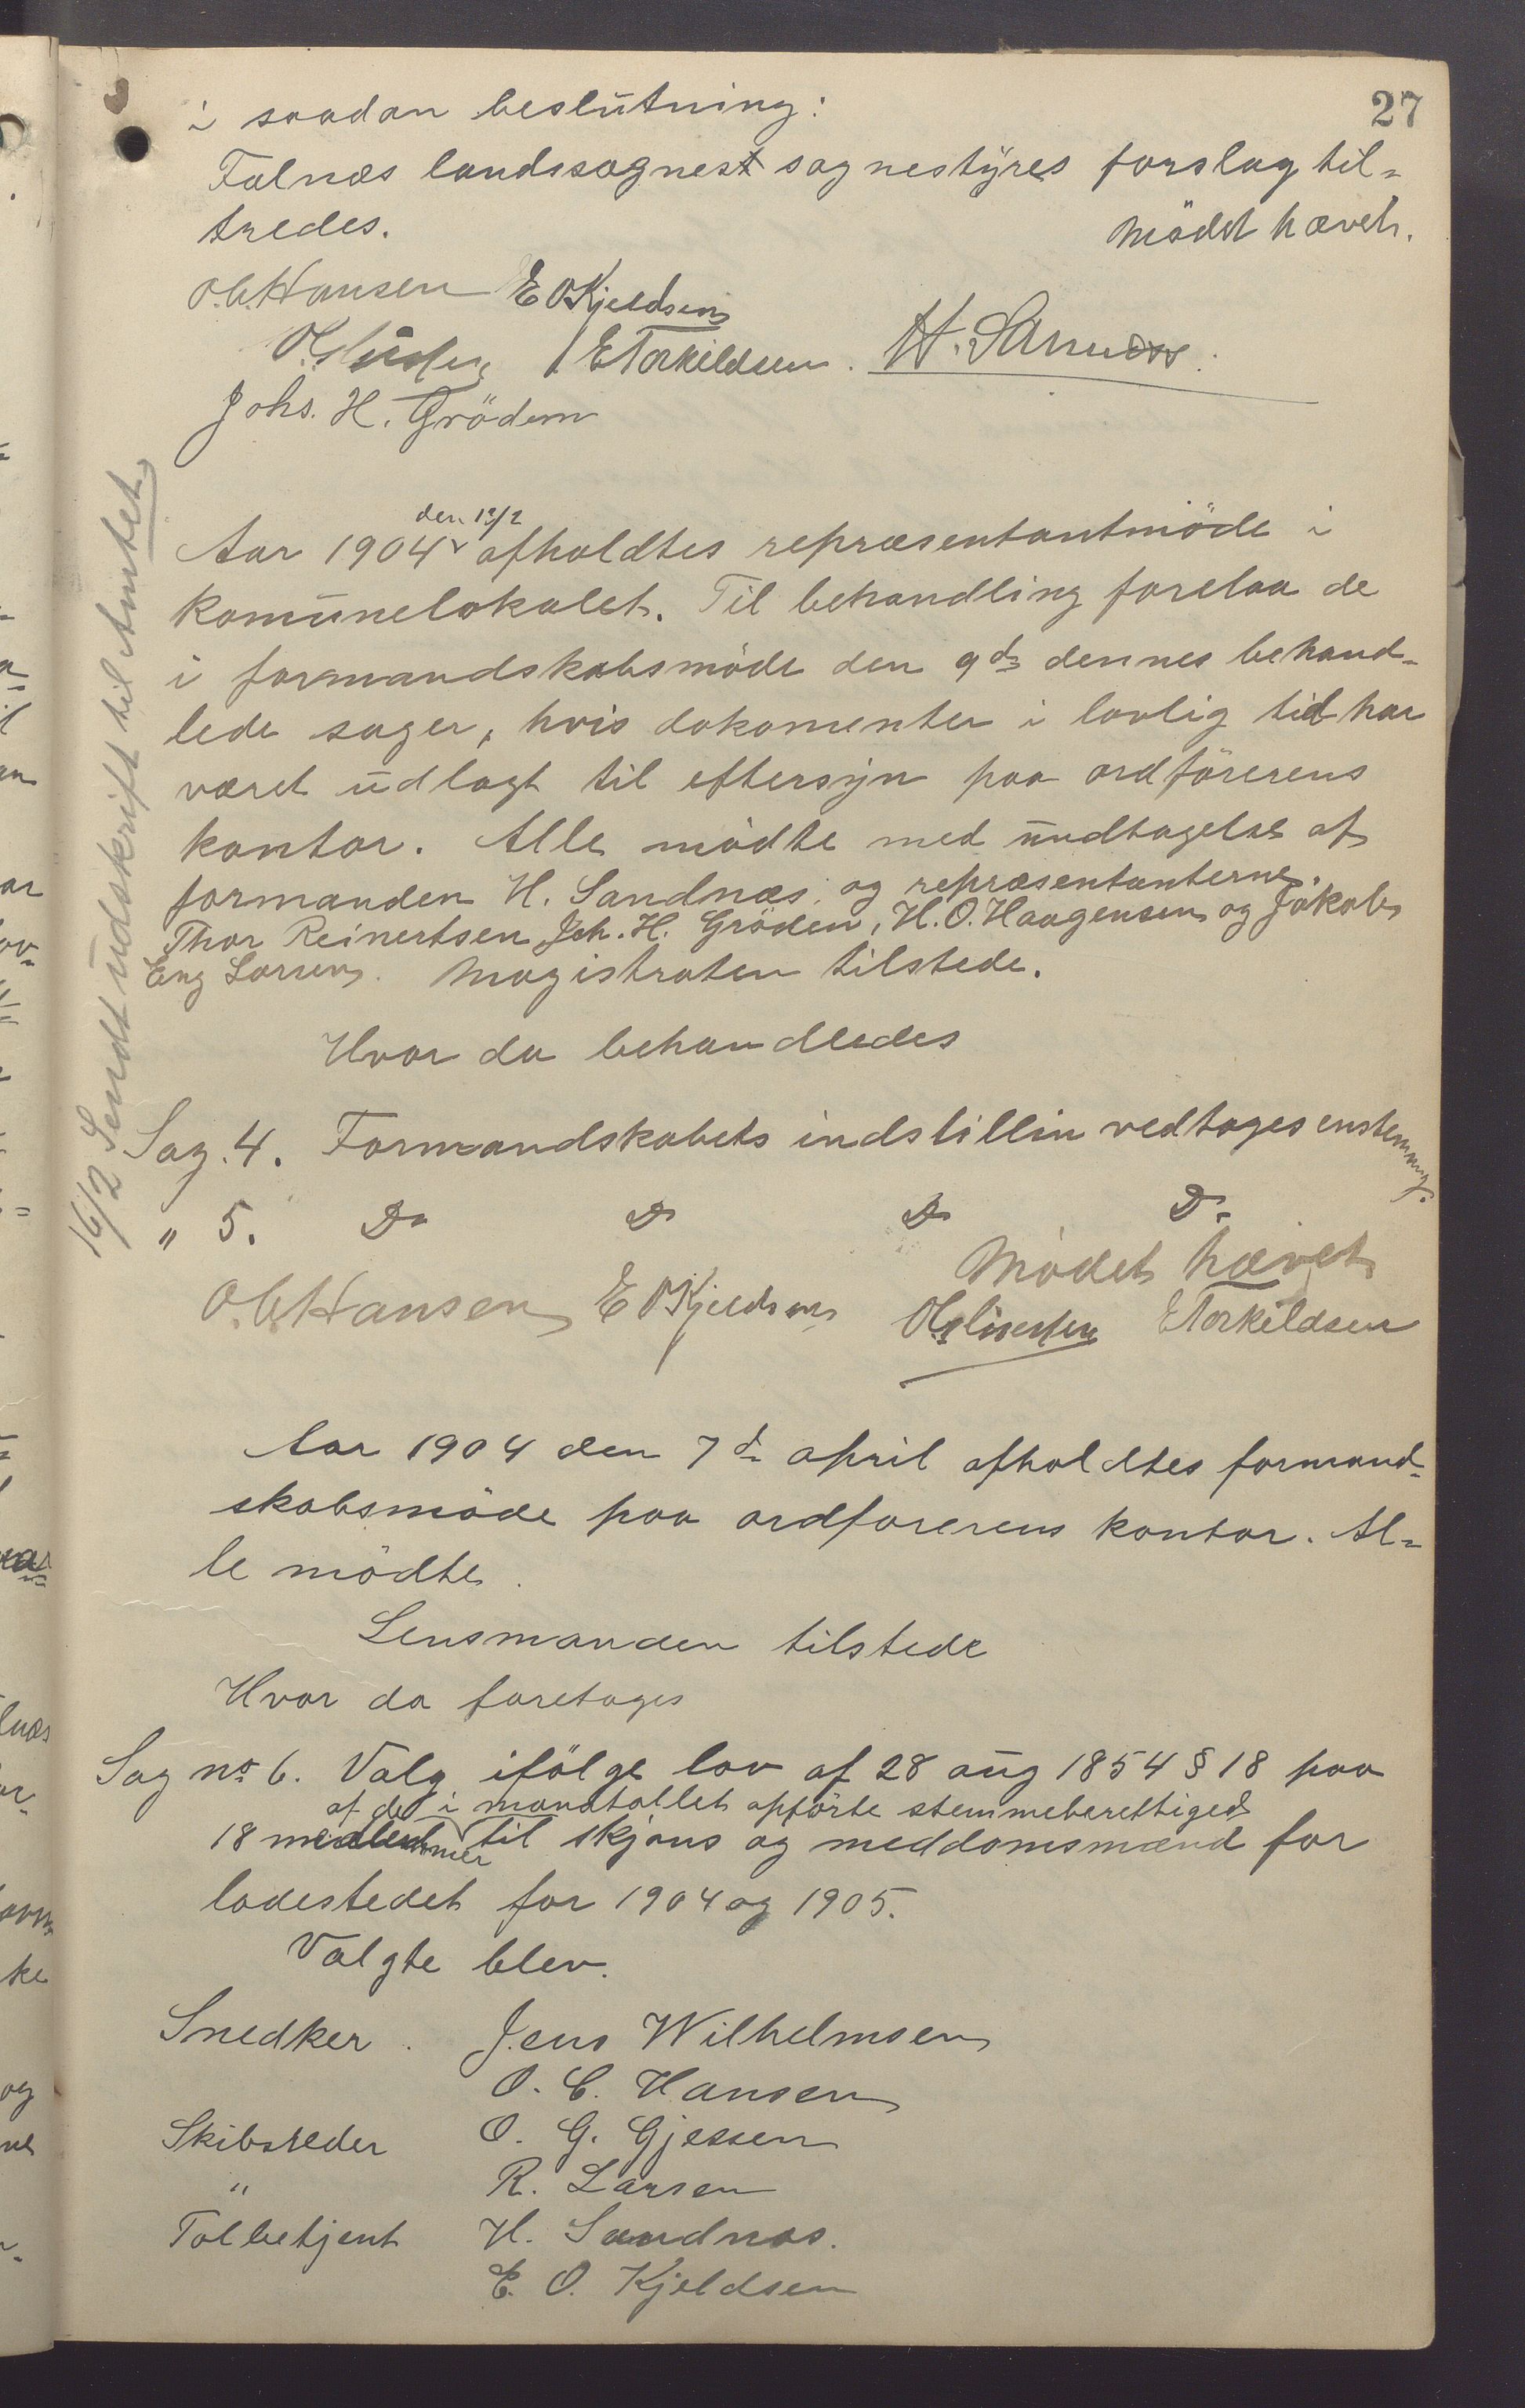 27
i saadan beslutning:
Falnæs landssognest sognestyres forslag til-
tredes.
Mödet hævet.
O.C. Hansen E O Kjeldsen
E Torkildsen. H. Sandnæs.
Johs. H. Gröden
16/2 Sendt udskrift til Amtet
den 12/2
Aar 1904 afholdtes repræsentantmöde i
Komunelokalet. Til behandling forelaa de
i formandskabsmöde den 9de dennes behand-
lede sager, hvis dokomenter i lovlig tid har
været udlagt til eftersyn paa ordförerens
kontor. Alle mödte med undtagelse af
formanden H. Sandnæs og repræsentanterne.
Thor Reinertsen Joh. H. Gröden, H. O. Haagensen og Jakob
Eng Larsen. Magistraten tilstede.
Hvor da behandledes
Sag. 4. Formandskabets indstillin vedtages enstemmig.
" 5. Do Do Do Do
Mödet hævet
O.C. Hansen E O Kjeldsen E Torkildsen
Aar 1904 den 7de april afholdtes formand-
skabsmöde paa ordforerens kontor. Al-
le mödte.
Lensmanden tilstede
Hvor da foretages
Sag no 6. Valg ifölge lov af 28 aug 1854 § 18 paa
af de i manatallet opförte stemmeberettiged
18 medlemmer til skjöns og meddomsmænd for
ladestedet for 1904 og 1905.
Valgte blev.
Snedker. Jens Wilhelmsen
O. C. Hansen
Skibsreder O. G. Gjessen
" R. Larsen
Tolbetjent H. Sandnæs.
E. O. Kjeldsen